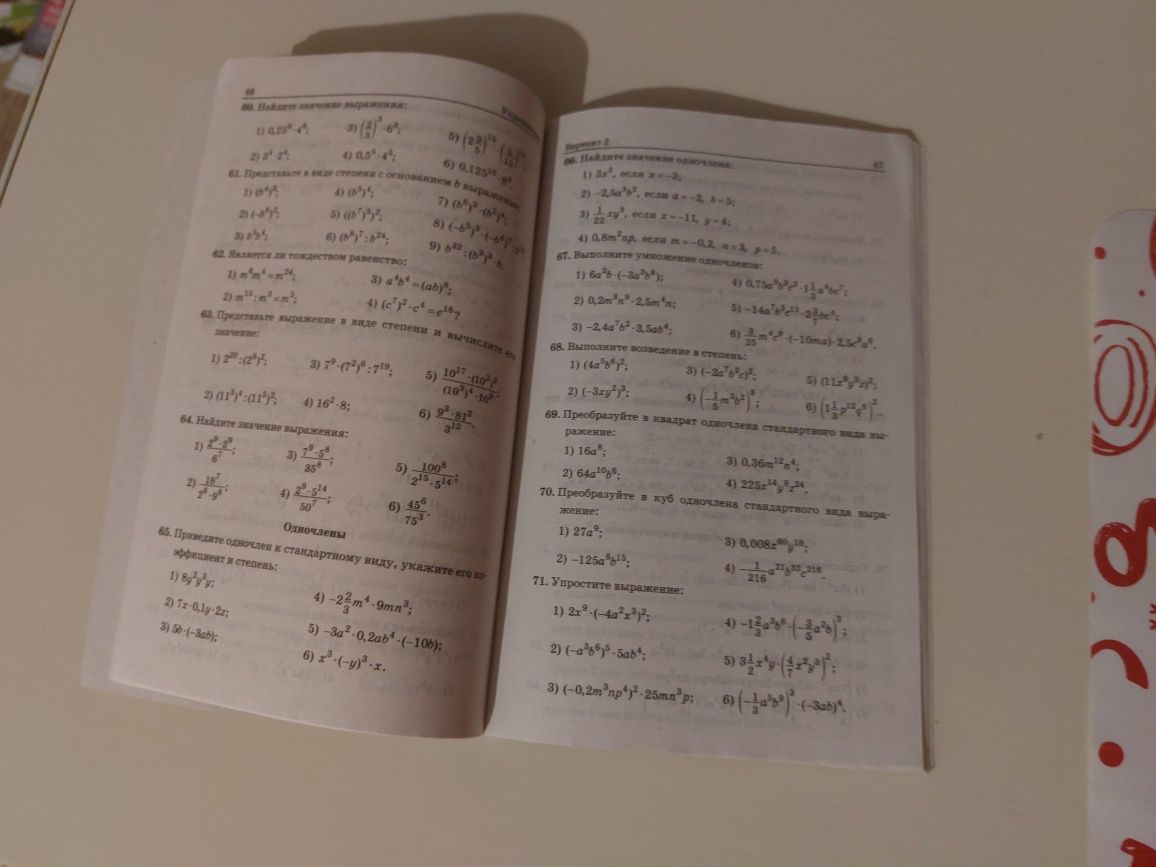 46
Упраж
60. Найдите значение выражения:
1) 0,25⁴·4⁴; 3) (2/3)³·6³;
2) 3⁴·2⁴; 4) 0,5⁵·4⁵; 6) 0,125¹⁰·8⁸
61. Представьте в виде степени с основанием b выражение:
1) (b⁴)²; 4) (b⁵)⁴; 7) (b⁶)³·(b²)⁴;
2) (−b⁶)²; 5) ((b⁷)³)²; 8) (−b⁵)³·(−b⁴)⁷:
3) b³b⁴; 6) (b⁸)⁷:b²⁴; 9) b³²:(b⁹)³·b.
62. Является ли тождеством равенство:
1) m⁶m⁴=m²⁴; 3) a⁴b⁴=(ab)⁶;
2) m¹⁵:m³=m³; 4) (c⁷)²·c⁴=c¹⁸?
63. Представьте выражение в виде степени и вычислите его
значение:
1) 2²⁰:(2⁵)²; 3) 7⁹·(7²)⁶:7¹⁹; 5) 10¹⁷·(10²)³/(10³)⁴·10⁹;
2) (11³)⁴:(11⁵)²; 4) 16²·8; 6) 9³·81²/3¹².
64. Найдите значение выражения:
1) 2⁹·3⁹/6⁷; 3) 7⁹·5⁸/35⁸; 5) 100⁸/2¹⁵·5¹⁴;
2) 18⁷/2⁶·9⁶; 4) 2⁹·5¹⁴/50⁷; 6) 45⁶/75³.
Одночлены
65. Приведите одночлен к стандартному виду, укажите его ко-
эффициент и степень:
1) 8y²y³y; 4) −2 2/3 m⁴·9mn³;
2) 7x·0,1y·2z; 5) −3a²·0,2ab⁴·(−10b);
3) 5b·(−3ab); 6) x³·(−y)³·x.
Вариант 2 47
66. Найдите значение одночлена:
1) 3x³, если x=−3;
2) −2,5a³b², если a=−2, b=5;
3) 1/22 xy³, если x=−11, y=4;
4) 0,8m²np, если m=−0,2, n=3, p=5.
67. Выполните умножение одночленов:
1) 6a²b·(−3a³b⁸); 4) 0,75a⁹b³c²·1 1/3 a⁴bc⁷;
2) 0,2m³n⁹·2,5m⁴n; 5) −14a⁷b⁵c¹¹·2 3/7 bc⁶;
3) −2,4a⁷b²·3,5ab⁴; 6) 3/25 m⁴c⁹·(−10ma)·2,5c³a⁶.
68. Выполните возведение в степень:
1) (4a⁵b⁶)²; 3) (−2a⁷b³c)²; 5) (11x⁹y³z)²;
2) (−3xy²)³; 4) (−1/5 m³b²)³; 6) (1 1/3 p¹²q⁶)².
69. Преобразуйте в квадрат одночлена стандартного вида вы-
ражение:
1) 16a⁸; 3) 0,36m¹²n⁴;
2) 64a¹⁰b⁶; 4) 225x¹⁴y⁸z²⁴.
70. Преобразуйте в куб одночлена стандартного вида выра-
жение:
1) 27a⁹; 3) 0,008x⁶⁰y¹⁸;
2) −125a⁶b¹⁵; 4) −1/216 a²¹b³³c²¹⁶.
71. Упростите выражение:
1) 2x⁹·(−4a²x³)²; 4) −1 2/3 a³b⁶·(−3/5 a²b)³;
2) (−a³b⁶)⁵·5ab⁴; 5) 3 1/2 x⁴y·(4/7 x²y³)²;
3) (−0,2m³np⁴)²·25mn³p; 6) (−1/3 a⁵b⁹)³·(−3ab)⁴.